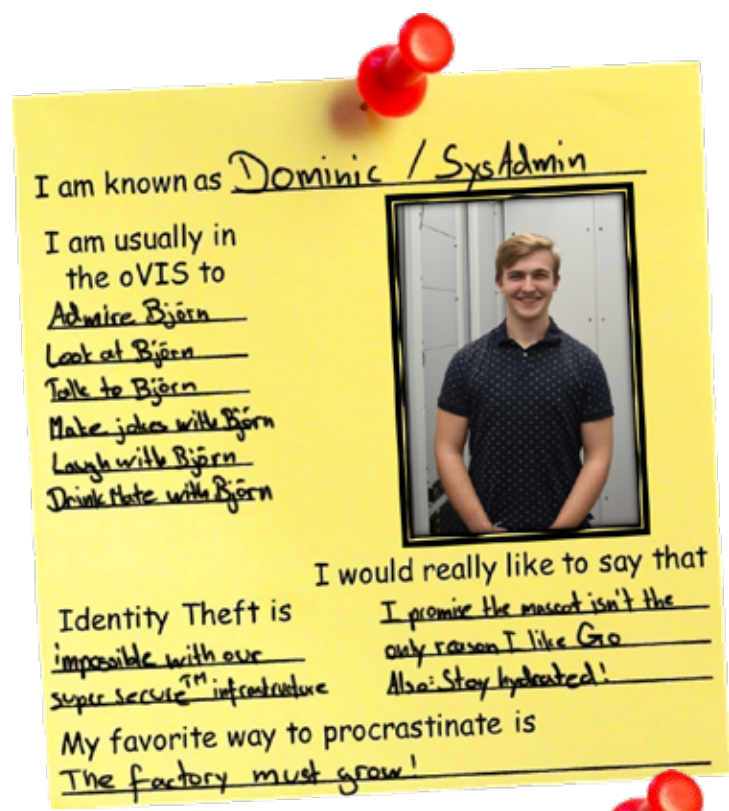 I am known as Dominic / SysAdmin
I am usually in
the oVIS to
Admire Björn
Look at Björn
Talk to Björn
Make jokes with Björn
Laugh with Björn
Drink Mate with Björn
I would really like to say that
I promise the mascot isn't the
only reason I like Go
Also: Stay hydrated!
Identity Theft is
impossible with our
super secure™ infrastructure
My favorite way to procrastinate is
The factory must grow!